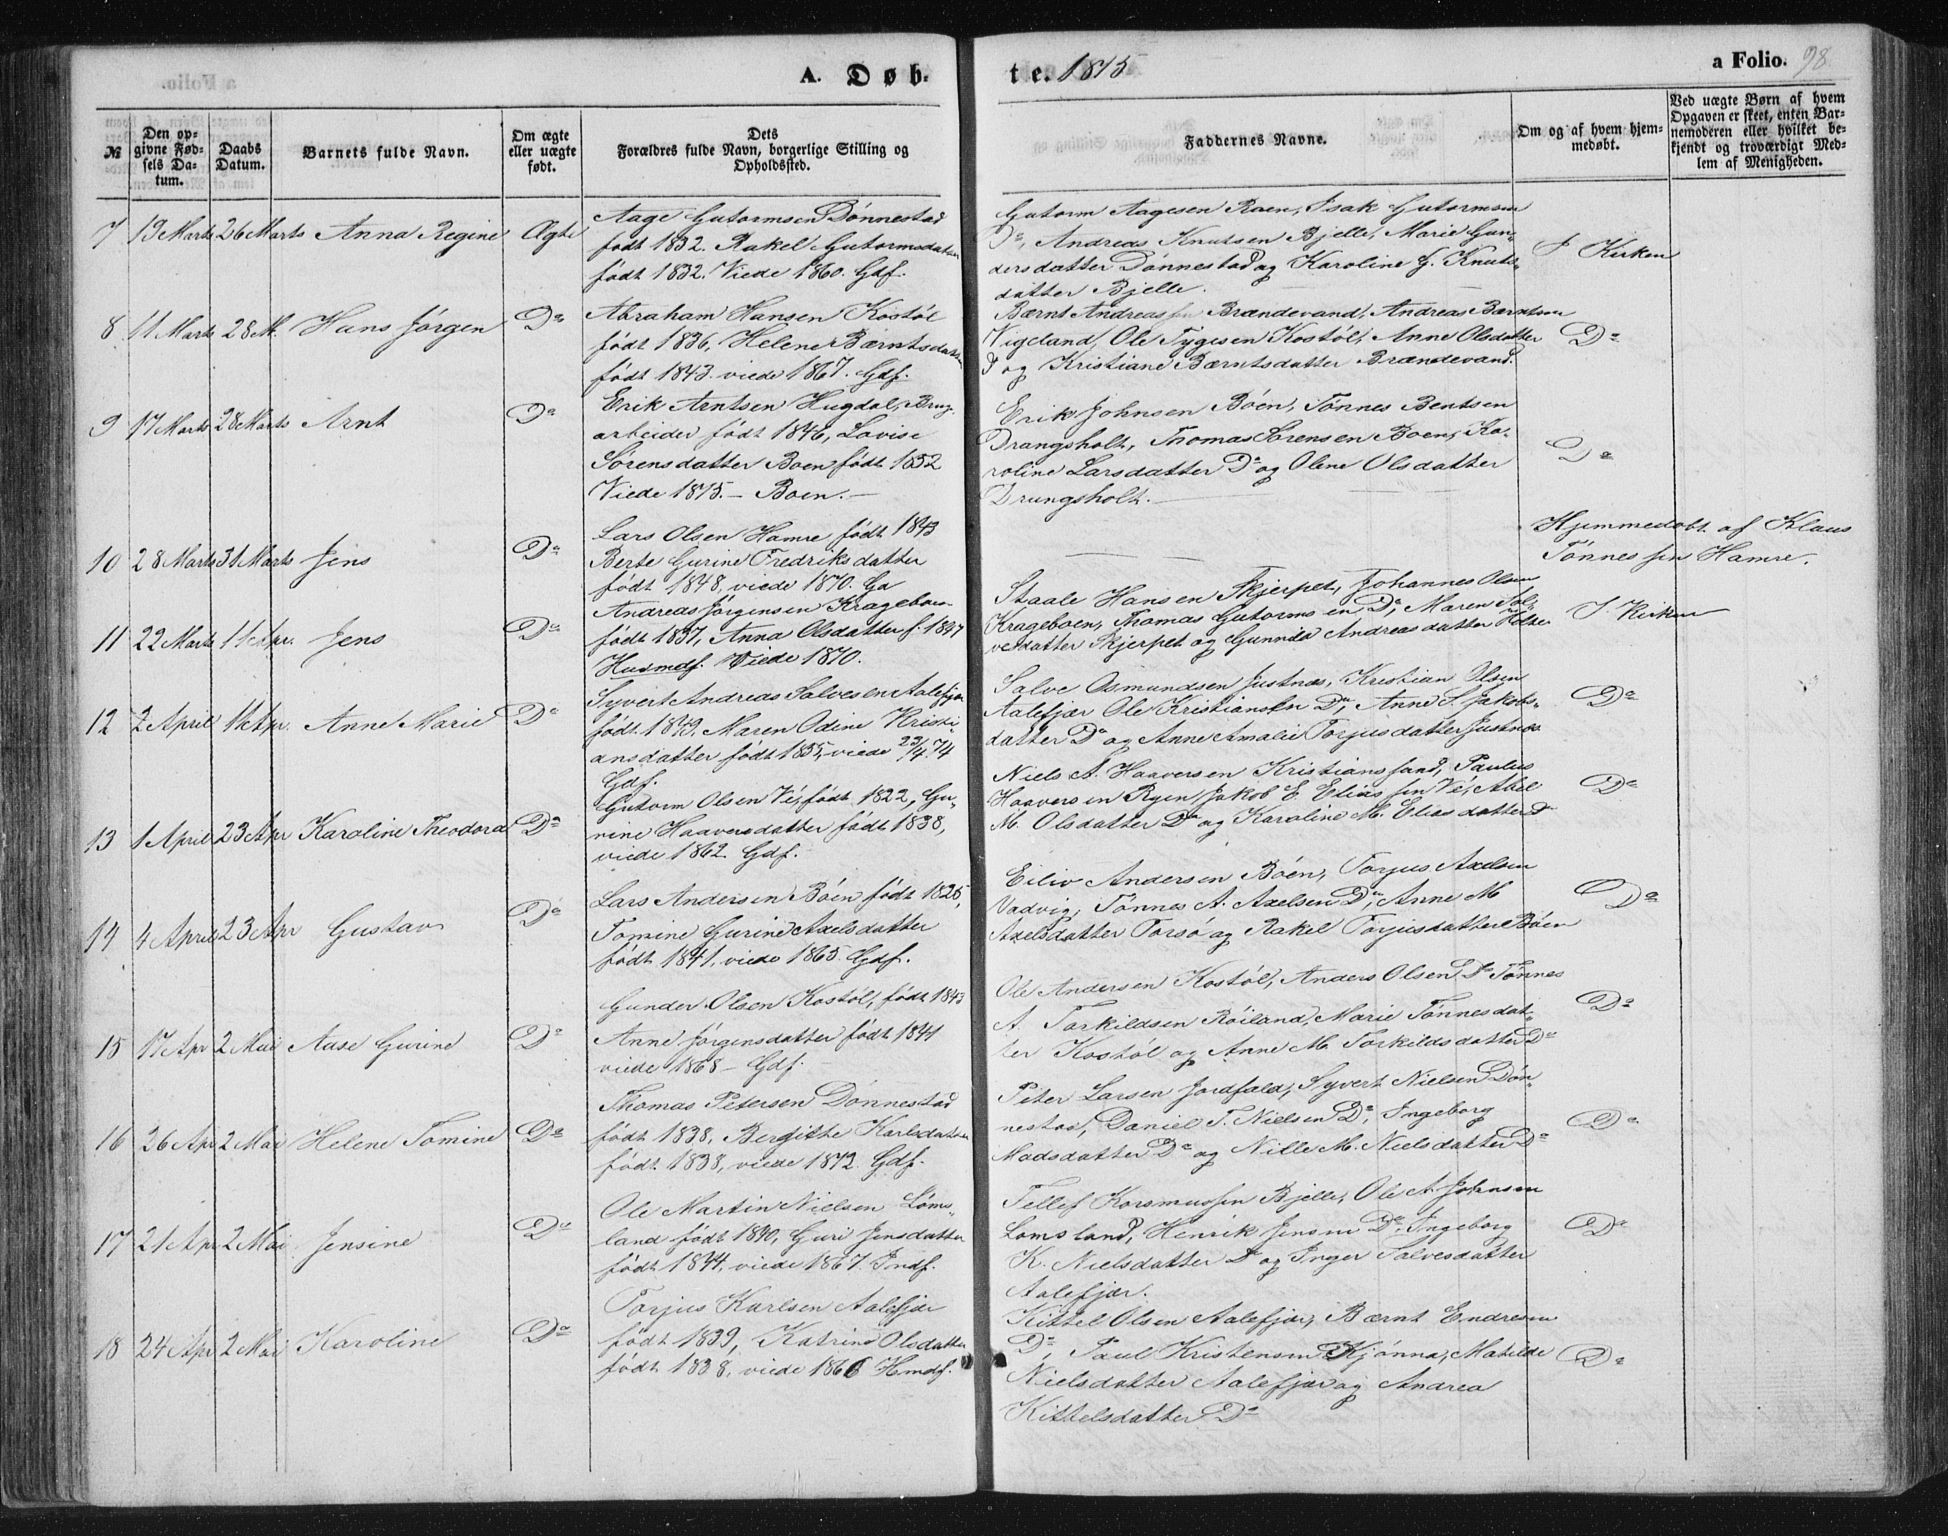 A. Døb-
te. 1875
a Folio. 98
№
Den op-
givne Fød-
sels Da-
tum.
Daabs
Datum.
Barnets fulde Navn.
Om ægte
eller uægte
født.
Dets
Forældres fulde Navn, borgerlige Stilling og
Opholdssted.
Faddernes Navne.
Om og af hvem hjem-
medøbt.
Ved uægte Børn af hvem
Opgaven er skeet, enten Bar-
nemoderen eller hvilket be-
kjendt og troværdigt Med-
lem af Menigheden.
7 19 Marts 26 Marts Anna Regine Ægte
Aage Gutormsen Dönnestad
født 1832. Rakel Gutormsdatter
født 1832. Viede 1860. Gdf.
Gutorm Aagesen Raen, Isak Gutormsen
Do, Andreas Knutsen Bjelle, Marie Gun-
dersdatter Dönnestad og Karoline G. Knuts-
datter Bjelle.
I Kirken
8 11 Marts 28 M. Hans Jörgen Do
Abraham Hansen Kostöl
født 1836, Helene Bærntsdatter
født 1843. viede 1867. Gdf.
Bærnt Andreassen Brændevand, Andreas Bærntsen
Vigeland, Ole Tygesen Kostöl, Anne Olsdatter
og Kristiane Bærntsdatter Brændevand.
Do
9 17 Marts 28 Marts Arnt Do
Erik Arntsen Hugdal, Brug-
arbeider født 1846, Lovise
Sörensdatter Boen født 1852
Viede 1875. - Boen. -
Erik Johnsen Böen, Tönnes Bentsen
Drangsholt, Thomas Sörensen Boen, Ka-
roline Larsdatter Do og Olene Olsdatter
Drangsholt. -
Do
10 28 Marts 31 Marts Jens Do
Lars Olsen Hamre født 1843
Berte Gurine Fredriksdatter
født 1848, viede 1870. Gd
Hjemmedøbt af Klaus
Tönnessen Hamre.
11 22 Marts 11 Apr. Jens Do
Andreas Jörgensen Krageboen
født 1837, Anna Olsdatter f. 1847
Husmdf. Viede 1870.
Staale Hansen Skjerpet, Johannes Olsen
Krageboen, Thomas Gutormsen Do, Maren Sal-
vesdatter Skjerpet og Gunnild Andreasdatter Holte
I Kirken
12 2 April 11 Apr. Anne Marie Do
Syvert Andreas Salvesen Aalefjær
født 1849, Maren Odine Kristi-
ansdatter født 1855, viede 23/4 74
Gdf.
Salve Osmundsen Justnæs, Kristian Olsen
Aalefjær Ole Kristiansen Do, Anne S. Jakobs-
datter Do og Anne Amalie Torjusdatter Justnæs
Do
13 1 April 23 Apr Karoline Theodora Do
Gutorm Olsen Vé, født 1822, Gu-
rine Haaversdatter født 1838,
viede 1862. Gdf.
Niels A. Haaversen Kristianssand, Paulus
Haaversen Ryen, Jakob E Eliassen Vé, Abel
M. Olsdatter Do og Karoline M. Eliasdatter Do
Do
14 4 April 23 Apr Gustav Do
Lars Andersen Böen født 1825,
Tomine Gurine Axelsdatter
født 1841, viede 1865. Gdf.
Eiliv Andersen Böen, Torjus Axelsen
Vadvig, Tönnes A. Axelsen Do, Anne M
Axelsdatter Torsö og Rakel Torjusdatter Böen
Do
15 17 Apr 2 Mai Aase Gurine Do
Gunder Olsen Kostöl, født 1843
Anne Jörgensdatter født 1844
viede 1868 - Gdf.
Ole Andersen Kostöl, Anders Olsen Do Tönnes
A. Torkildsen Röiland, Marie Tönnesdat-
ter Kostöl og Anne M. Torkildsdatter Do
Do
16 26 Apr 2 Mai Helene Tomine Do
Thomas Petersen Dönnestad
født 1838, Bergithe Karlsdatter
født 1838, viede 1872. Gdf.
Peter Larsen Jordfald, Syvert Nielsen Dön-
nestad, Daniel T. Nielsen Do, Ingeborg
Madsdatter Do og Nille M. Nielsdatter Do
Do
17 21 Apr 2 Mai Jensine Do
Ole Martin Nielsen Löms-
land født 1840, Guri Jensdatter
født 1844, viede 1867. Indf.
Tellef Rasmussen Bjelle, Ole A. Johnsen
Lömsland, Henrik Jensen Do, Ingeborg
K. Nielsdatter Do og Inger Salvesdatter
Aalefjær.
Do
18 24 Apr 2 Mai Karoline Do
Torjus Karlsen Aalefjær
født 1839, Katrine Olsdatter
født 1838, viede 1866 Hmdf.
Kittel Olsen Aalefjær, Bærnt Endresen
Do, Paul Kristensen Kjönna, Matilde
Nielsdatter Aalefjær og Andrea
Kittelsdatter Do
Do